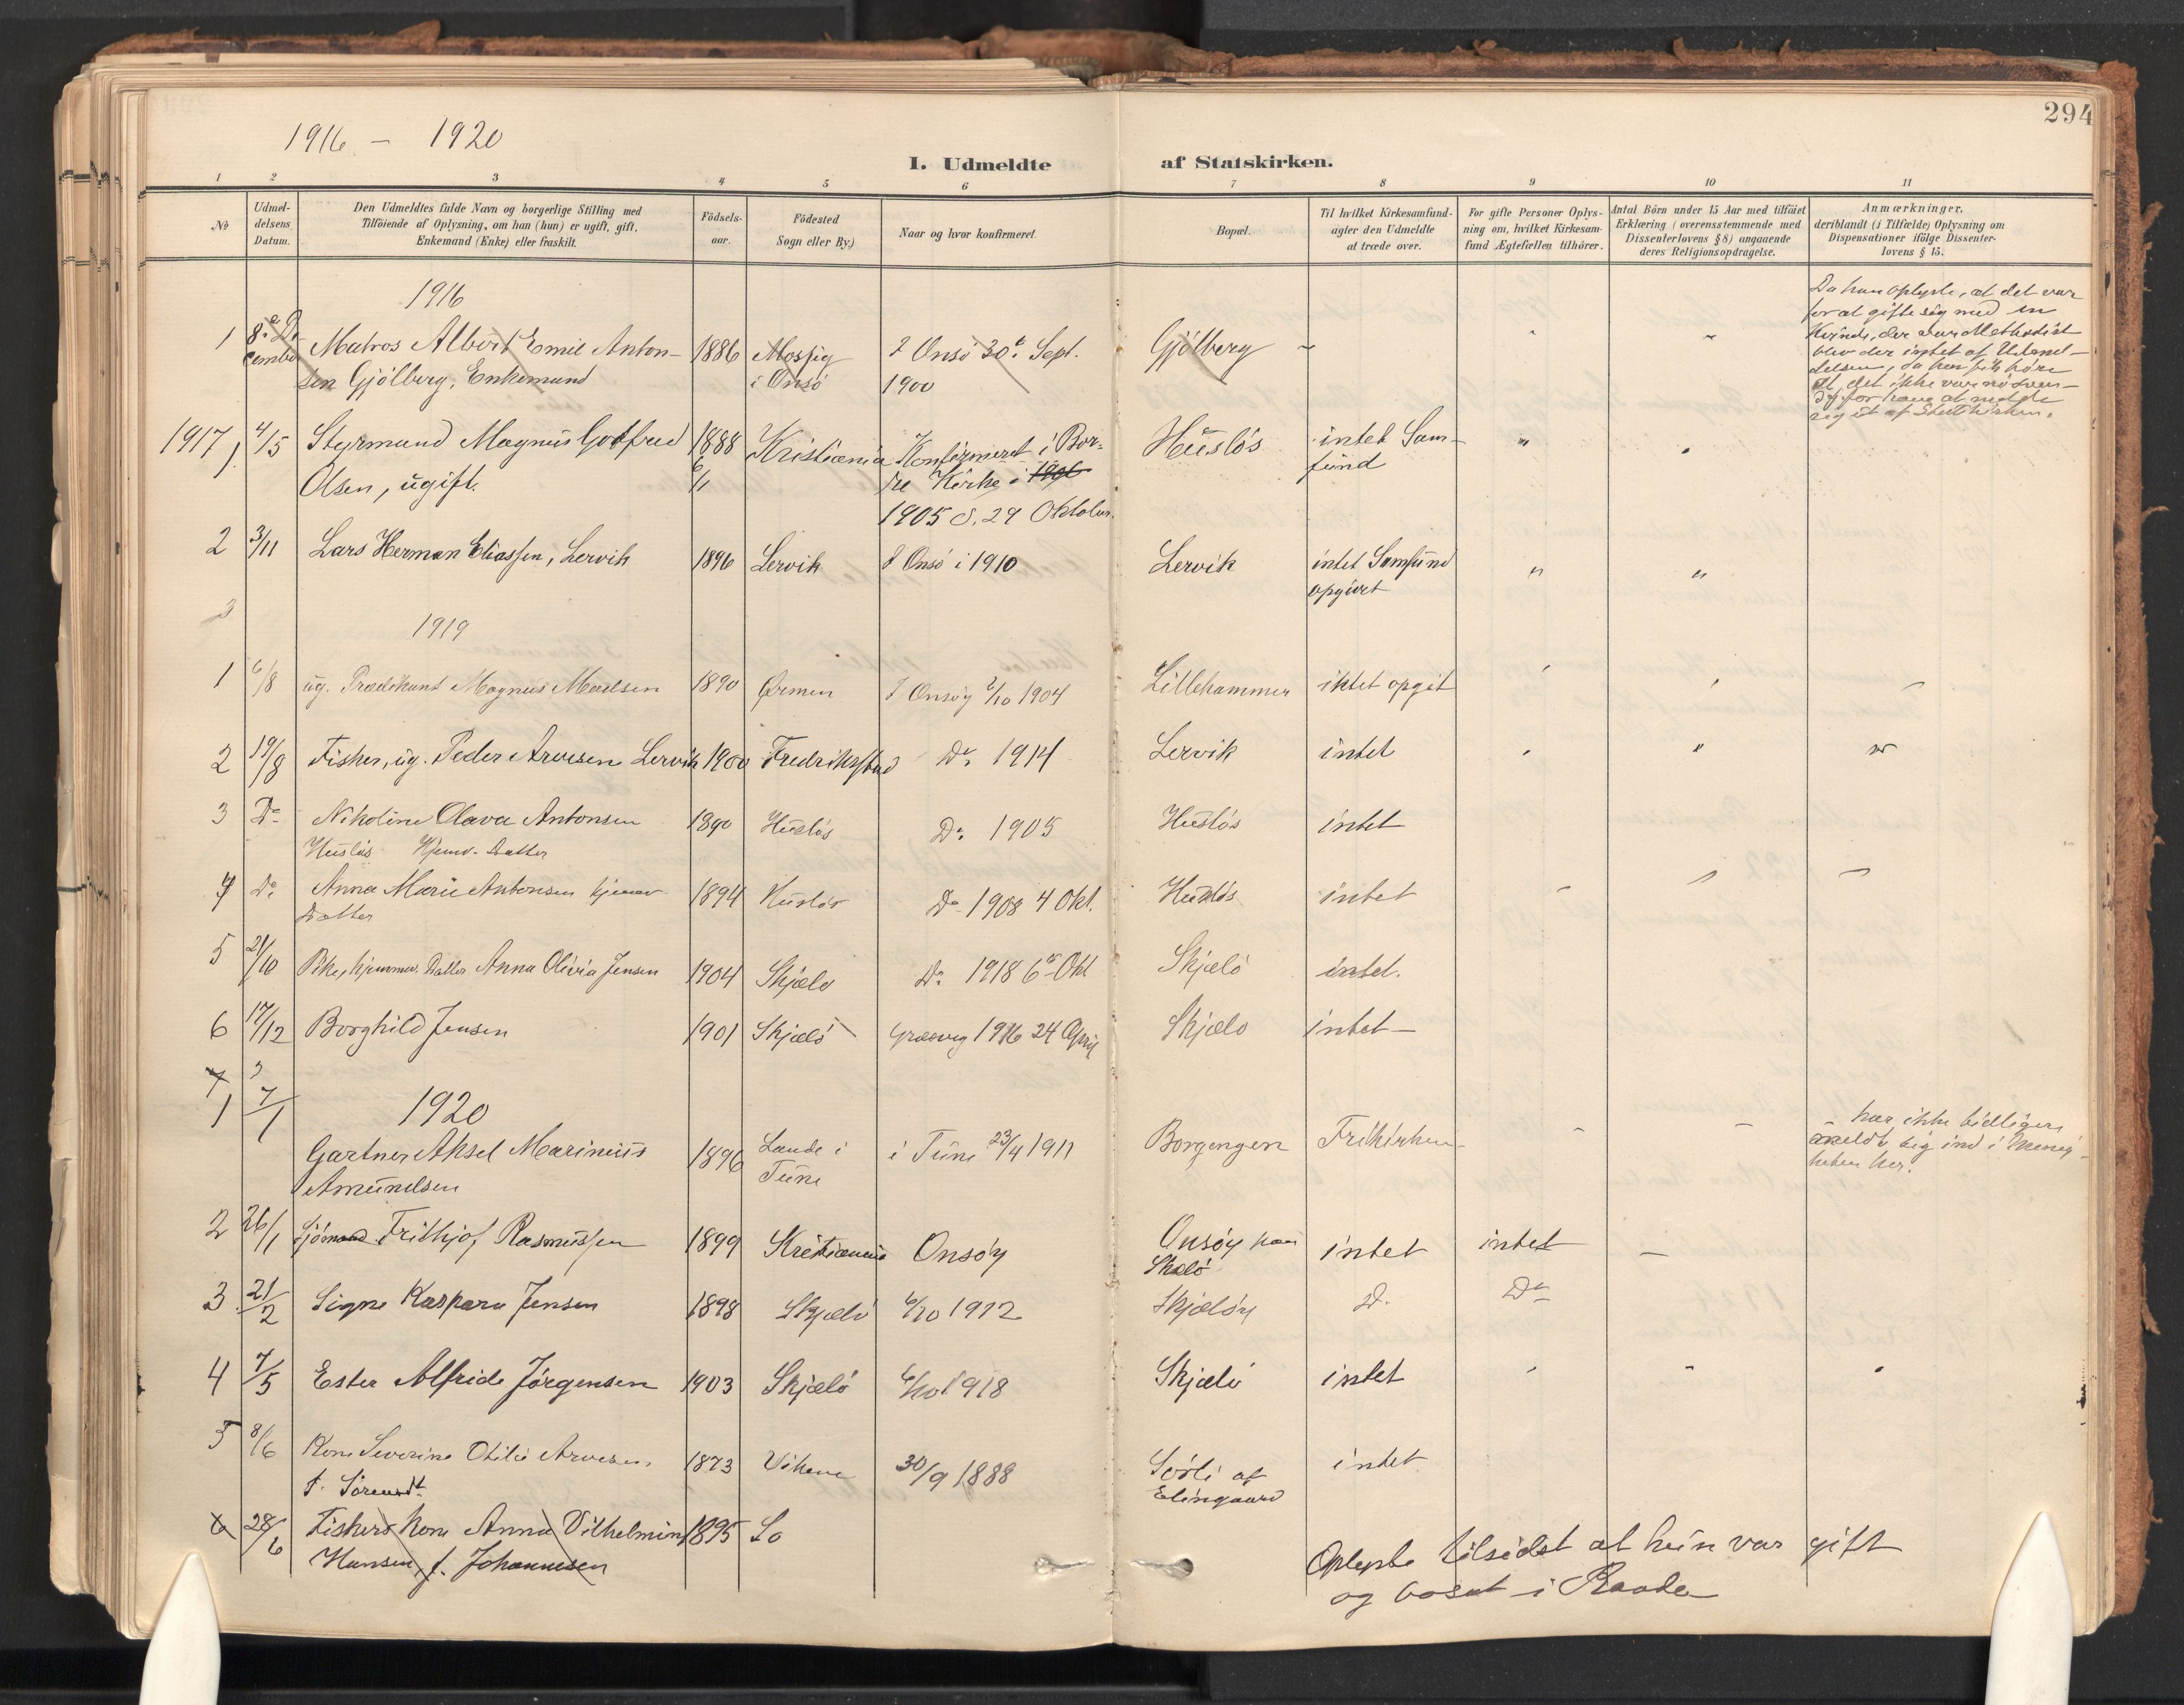 294
1916 – 1920
I. Udmeldte af Statskirken.
1 2 3 4 5 6 7 8 9 10 11
№
Udmel-
delsens
Datum.
Den Udmeldtes fulde Navn og borgerlige Stilling med
Tilföiende af Oplysning, om han (hun) er ugift, gift,
Enkemand (Enke) eller fraskilt.
Födsels-
aar.
Födested
Sogn eller By.)
Naar og hvor konfirmeret.
Bopæl.
Til hvilket Kirkesamfund-
agter den Udmeldte
at træde over.
For gifte Personer Oplys-
ning om, hvilket Kirkesam-
fund Ægtefællen tilhörer.
Antal Börn under 15 Aar med tilföiet
Erklæring (overensstemmende med
Dissenterlovens § 8) angaaende
deres Religionsopdragelse.
Anmærkninger,
deriblandt (i Tilfælde) Oplysning om
Dispensationer ifölge Dissenter-
lovens § 15.
1916
1 8de De- Matros Albert Emil Anton- 1886 Mossig I Onsö 30te Sept. Gjölberg
cember sen Gjölberg, Enkemand i Onsö 1900
Da han oplyste, at det var
for at gifte sig med en
Kvinde, der var Methodist
blev der intet af Udmel-
delsen, da han fik höre
at det ikke var nödven-
dig for ham at melde
sig ut af Statskirken.
1917 1 4/5 Styrmand Magnus Gotfred 1888 Kristiania Konfirmeret i Bor- Huslös intet Sam- " "
Olsen, ugift. 6/1 re Kirke i 1906 fund
1905 d. 29 Oktober.
2 3/11 Lars Herman Eliassen, Lervik 1896 Lervik I Onsö i 1910 Lervik intet Samfund " "
opgivet
3
1919
1 6/8 ug. Prædikant Magnus Madsen 1890 Ørmen I Onsöy 2/10 1904 Lillehammer intet opgit
2 19/8 Fisker, ug. Peder Arvesen Lervik 1900 Fredrikstad Do 1914 Lervik intet " "
3 Do Nikoline Olava Antonsen 1890 Huslös Do 1905 Huslös intet
Huslös Hjemv. Datter
4 Do Anna Marie Antonsen hjemv 1894 Huslös Do 1908 4 Okt. Huslös intet
Datter
5 21/10 Pike, hjemmev. Datter Anna Olivia Jensen 1904 Skjælö Do 1918 6te Okt Skjælö intet.
6 17/12 Borghild Jensen 1901 Skjælö Græsvig 1916 24 April Skjælö intet –
7
1 7/1 1920
Gartner Aksel Marinius 1896 Lande i i Tune 23/4 1911 Borgengen Frikirken
Amundsen Tune
har ikke tidligere
meldt sig ind i Menig-
heten her.
2 26/1 Sjömand Frithjof Rasmussen 1899 Kristiania Onsöy Onsöy paa intet intet –
Skælö
3 21/2 Signe Kaspara Jensen 1898 Skjælö 6/10 1912 Skjælöy Do Do
4 7/5 Ester Alfride Jörgensen 1903 Skjælö 6/10 1918 Skjælö intet
5 8/6 Kone Severine Otilie Arvesen, 1873 Vikene 30/9 1888 Sörli af intet
f. Sörensdt. Elingaard
6 28/6 Fiskers Kone Anna Vilhelmine 1895 Lo
Hansen, f. Johannesen
Oplyste tilsidst at hun var gift
og bosat i Raade